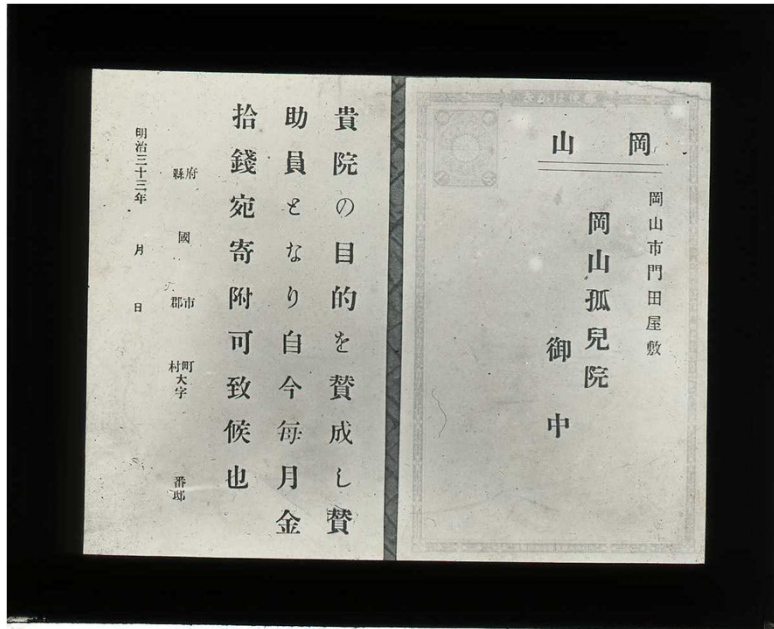 岡山
岡山市門田屋敷
岡山孤兒院
御中
貴院の目的を賛成し賛
助員となり自今毎月金
拾錢宛寄附可致候也
府縣 國 市郡 町村大字 番邸
明治三十三年 月 日